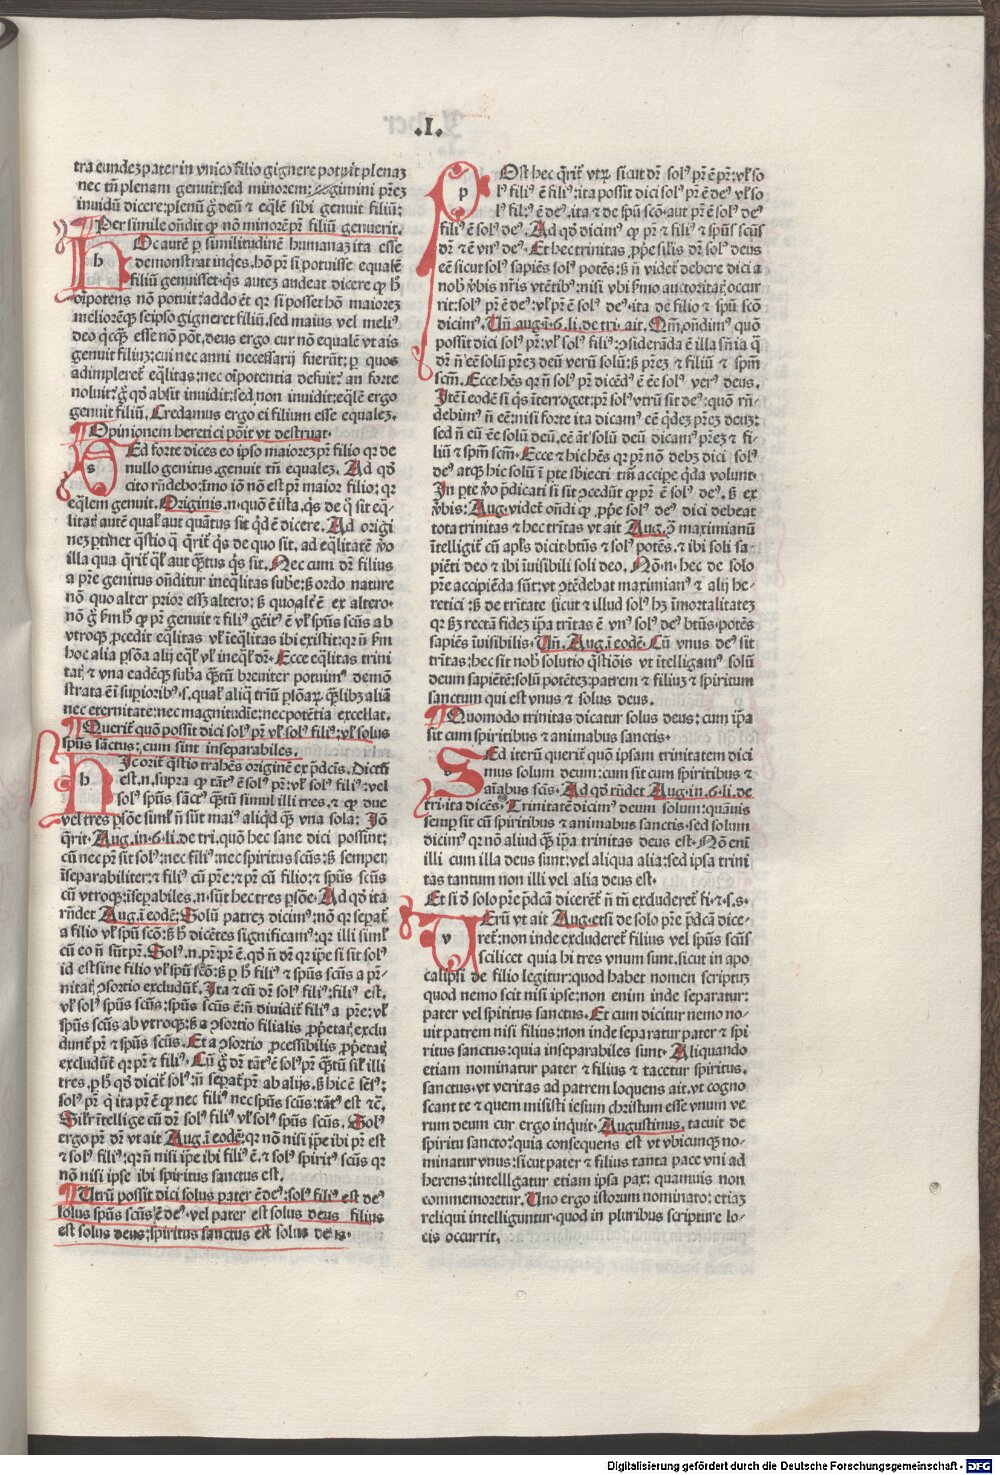 .I.
tra eundez pater in vnico filio gignere potuit plenaz
nec tñ plenam genuit: sed minorem: gimini prẽz
inuidũ dicere: plenũ g̃ deũ ⁊ eq̃lẽ sibi genuit filiũ:
¶Per simile oñdit ꝙ nõ minorẽ pr̃ filiũ genuerit.
hOc autẽ ꝑ similitudinẽ humanaz ita esse
demonstrat inq̃es. hõ pr̃ si potuisse equalẽ
filiũ genuisset. q̃s autez andeat dicere ꝙ h̃
oĩpotens nõ potuit: addo ẽt qr si posset hõ maiorez
meliorẽqꝫ seipso gigneret filiũ. sed maius vel meliꝰ
deo q̃cq̃ꝫ esse nõ põt. deus ergo cur nõ equalẽ vt ais
genuit filiuz: cui nec anni necessarij fuerũt: ꝑ quos
adimpleret̃ eq̃litas: nec oĩpotentia defuit: an forte
noluit: g̃ qd̃ absit inuidit: sed non inuidit: eq̃lẽ ergo
genuit filiũ. Credamus ergo ei filium esse equalez.
¶Opinionem heretici põit vt destruat.
sEd forte dices eo ipso maiorez pr̃ filio qr de
nullo genitus. genuit tñ equalez. Ad qd̃
cito rñdebo: ĩmo iõ nõ est pr̃ maior filio: qr
eq̃lem genuit. Originis. n. quõ ẽ ista. q̃s de q̃ sit eq̃-
litat̃ autẽ qual̃ aut quãtus sit q̃d ẽ dicere. Ad origi
nez ꝑtinet q̃stio q̃ q̃rit̃ q̃s de quo sit. ad eq̃litatẽ ṽo
illa qua q̃rit̃ q̃l̃ aut q̃ꝫtus q̃s sit. Nec cum dr̃ filius
a pr̃e genitus oñditur ineq̃litas sub̃e: ß ordo nature
nõ quo alter prior essꝫ altero: ß quo alt̃ ẽ ex altero.
nõ g̃ ßm h̃ ꝙ pr̃ genuit ⁊ filiꝰ gẽit̃ ẽ vl̃ spũs scũs ab
vtroqꝫ ꝓcedit eq̃litas vl̃ ĩeq̃litas ibi existit: qr ñ ßm
hoc alia ꝑsõa alij eq̃l̃ vl̃ ineq̃l̃ dr̃. Ecce eq̃litas trini
tat̃ ⁊ vna eadẽqꝫ sub̃a q̃ꝫtũ breuiter potuimꝰ demõ
strata ẽ ĩ supioribꝰ. s. qual̃ aliq̃ triũ ꝑsõaꝝ q̃ꝫlibꝫ aliã
nec eternitate: nec magnitudĩe: nec potẽtia excellat.
¶Querit̃ quõ possit dici solꝰ pr̃ vl̃ solꝰ filiꝰ: vl̃ solus
spũs sãctus: cum sint inseparabiles.
hIc orit̃ q̃stio trahẽs originẽ ex p̃dcĩs. Dictũ
est. n. supra ꝙ tãtꝰ ẽ solꝰ pr̃: vl̃ solꝰ filiꝰ: vel
solꝰ spũs sãctꝰ q̃ꝫtũ simul illi tres. ⁊ ꝙ due
vel tres ꝑsõe siml̃ ñ sũt maiꝰ aliq̃d q̃ꝫ vna sola: Iõ
q̃rit. Aug. in. 6. li. de tri. quõ hec sane dici possint:
cũ nec pr̃ sit solꝰ: nec filiꝰ: nec spiritus scũs: ß semper
ĩseparabiliter: ⁊ filiꝰ cũ pr̃e: ⁊ pr̃ cũ filio: ⁊ spũs scũs
cũ vtroqꝫ: ĩseꝑabiles. n. sũt hec tres ꝑsõe. Ad qd̃ ita
rñdet Aug. ĩ eodẽ: Solũ patrez dicimꝰ: nõ qr sepat̃
a filio vl̃ spũ scõ: ß h̃ dicẽtes significamꝰ: qr illi siml̃
cũ eo ñ sũt pr̃. Solꝰ. n. pr̃ pr̃ ẽ. qd̃ ñ dr̃ qr ipe si sit solꝰ
id est sine filio vl̃ spũ scõ: ß ꝑ h̃ filiꝰ ⁊ spũs scũs a pr̃-
nitat̃ ꝯsortio excludũt̃. Ita ⁊ cũ dr̃ solꝰ filiꝰ: filiꝰ est.
vl̃ solꝰ spũs scũs: spũs scũs ẽ: ñ diuidit̃ filiꝰ a pr̃e: vl̃
spũs scũs ab vtroqꝫ: ß a ꝯsortio filialis ꝓp̃etat̃ exclu
dunt̃ pr̃ ⁊ spũs scũs. Et a ꝯsortio ꝓcessibilis ꝓp̃etat̃
excludũt̃ qr pr̃ ⁊ filiꝰ. Cũ g̃ dr̃ tãtꝰ ẽ solꝰ pr̃ q̃ꝫtũ sil̃ illi
tres. ꝑ h̃ qd̃ dicit̃ solꝰ: ñ sepat̃ pr̃ ab alijs. ß hic ẽ sẽsꝰ:
solꝰ pr̃ q̃ ita pr̃ ẽ ꝙ nec filiꝰ nec spũs scũs: tãtꝰ est ⁊c̃.
Silr̃ ĩtellige cũ dr̃ solꝰ filiꝰ vl̃ solꝰ spũs scũs. Solꝰ
ergo pr̃ dr̃ vt ait Aug. ĩ eodẽ: qr nõ nisi ip̃e ibi pr̃ est
⁊ solꝰ filiꝰ: qr ñ nisi ip̃e ibi filiꝰ ẽ. ⁊ solꝰ spiritꝰ scũs qr
nõ nisi ipse ibi spiritus sanctus est.
¶Utrũ possit dici solus pater ẽ deꝰ: solꝰ filiꝰ est deꝰ
solus spũs scũs ẽ deꝰ. vel pater est solus deus filius
est solus deus: spiritus sanctus est solus deus.
pOst hec q̃rit̃ vtꝝ sicut dr̃ solꝰ pr̃ ẽ pr̃: vl̃ so
lꝰ filiꝰ ẽ filiꝰ: ita possit dici solꝰ pr̃ ẽ deꝰ vl̃ so
lꝰ filiꝰ ẽ deꝰ. ita ⁊ de spũ scõ. aut pr̃ ẽ solꝰ deꝰ
filiꝰ ẽ solꝰ deꝰ. Ad qd̃ dicimꝰ ꝙ pr̃ ⁊ filiꝰ ⁊ spũs scũs
dr̃ ⁊ ẽ vnꝰ deꝰ. Et hec trinitas ꝓp̃e silis dr̃ solꝰ deus
eẽ sicut solꝰ sapiẽs solꝰ potẽs: ß ñ videt̃ debere dici a
nob̃ ṽbis nr̃is vtẽtibꝰ: nisi vbi ßmo auctoritat̃ occur
rit: solꝰ pr̃ ẽ deꝰ: vl̃ pr̃ ẽ solꝰ deꝰ. ita de filio ⁊ spũ scõ
dicimꝰ. Uñ aug. ĩ. 6. li. de tri. ait. Qm̃. oñdimꝰ quõ
possit dici solꝰ pr̃: vl̃ solꝰ filiꝰ: ꝯsiderãda ẽ illa sñia q̃
dr̃ ñ eẽ solũ prẽz deũ verũ solũ: ß prẽz ⁊ filiũ ⁊ spm̃
scm̃. Ecce hẽs qr ñ solꝰ pr̃ dicẽdꝰ ẽ eẽ solꝰ verꝰ deus.
Itẽ ĩ eodẽ si q̃s ĩterroget: pr̃ solꝰ vtrũ sit deꝰ: quõ rñ-
debimꝰ ñ eẽ: nisi forte ita dicamꝰ eẽ q̃dez prẽz deuz:
sed ñ eũ eẽ solũ deũ. eẽ ãt solũ deũ dicamꝰ prẽz ⁊ fi-
liũ ⁊ spm̃ scm̃. Ecce ⁊ hic hẽs qr pr̃ nõ debꝫ dici solꝰ
deꝰ atqꝫ hic solũ ĩ ꝑte sbiecti tm̃ accipe q̃da volunt.
In ꝑte ṽo p̃dicati si sit ꝯcedũt ꝙ pr̃ ẽ solꝰ deꝰ. ß ex
ṽbis: Aug. videt̃ oñdi ꝙ ꝓp̃e solꝰ deꝰ dici debeat
tota trinitas ⁊ hec trĩtas vt ait Aug. ꝯ̃ maximianũ
ĩtelligit̃ cũ apl̃s dicit: btũs ⁊ solꝰ potẽs. ⁊ ibi soli sa-
piẽti deo ⁊ ibi ĩuisibili soli deo. Nõ. n. hec de solo
pr̃e accipiẽda sũt: vt ꝯtẽdebat maximianꝰ ⁊ alij he-
retici: ß de trĩtate sicut ⁊ illud solꝰ hꝫ ĩmortalitatez
qr ßꝫ rectã fidez ip̃a trĩtas ẽ vnꝰ solꝰ deꝰ btũs. potẽs
sapiẽs ĩuisibilis. Uñ. Aug. ĩ eodẽ. Cũ vnus deꝰ sit
trĩtas: hec sit nob̃ solutio q̃stiõis vt ĩtelligamꝰ solũ
deum sapiẽtẽ: solũ potẽtez: patrem ⁊ filiuz ⁊ spiritum
sanctum qui est vnus ⁊ solus deus.
¶Quomodo trinitas dicatur solus deus: cum ip̃a
sit cum spiritibus ⁊ animabus sanctis.
sEd iterũ querit̃ quõ ipsam trinitatem dici
mus solum deum: cum sit cum spiritibus ⁊
aĩabus scĩs. Ad qd̃ rñdet Aug. in. 6. li. de
tri. ita dicẽs. Trinitatẽ dicimꝰ deum solum: quãuis
semꝑ sit cũ spiritibus ⁊ animabus sanctis. sed solum
dicimꝰ qr nõ aliud q̃ꝫ ip̃a trinitas deus est. Nõ eni
illi cum illa deus sunt: vel aliqua alia: sed ipsa trini
tas tantum non illi vel alia deus est.
Et si ð solo pr̃e p̃dcã diceret̃ ñ tñ excluderet̃ fi. ⁊. s. s.
vErũ vt ait Aug. etsi de solo pr̃e p̃dcã dice-
ret̃: non inde excluderet̃ filius vel spũs scũs
scilicet quia hi tres vnum sunt. sicut in apo
calipsi de filio legitur: quod habet nomen scriptuz
quod nemo scit nisi ipse: non enim inde separatur:
pater vel spiritus sanctus. Et cum dicitur nemo no-
uit patrem nisi filius: non inde separatur pater ⁊ spi
ritus sanctus: quia inseparabiles sunt. Aliquando
etiam nominatur pater ⁊ filius ⁊ tacetur spiritus.
sanctus. vt veritas ad patrem loquens ait. vt cogno
scant te ⁊ quem misisti iesum christum esse vnum ve
rum deum cur ergo inquit. Augustinus. tacuit de
spiritu sancto: quia consequens est vt vbicunqꝫ no-
minatur vnus: sicut pater ⁊ filius tanta pace vni ad
herens: intelligatur etiam ipsa pax: quamuis non
commemoretur. Uno ergo istorum nominato: etiaz
reliqui intelliguntur. quod in pluribus scripture lo-
cis occurrit.
Digitalisierung gefördert durch die Deutsche Forschungsgemeinschaft - DFG